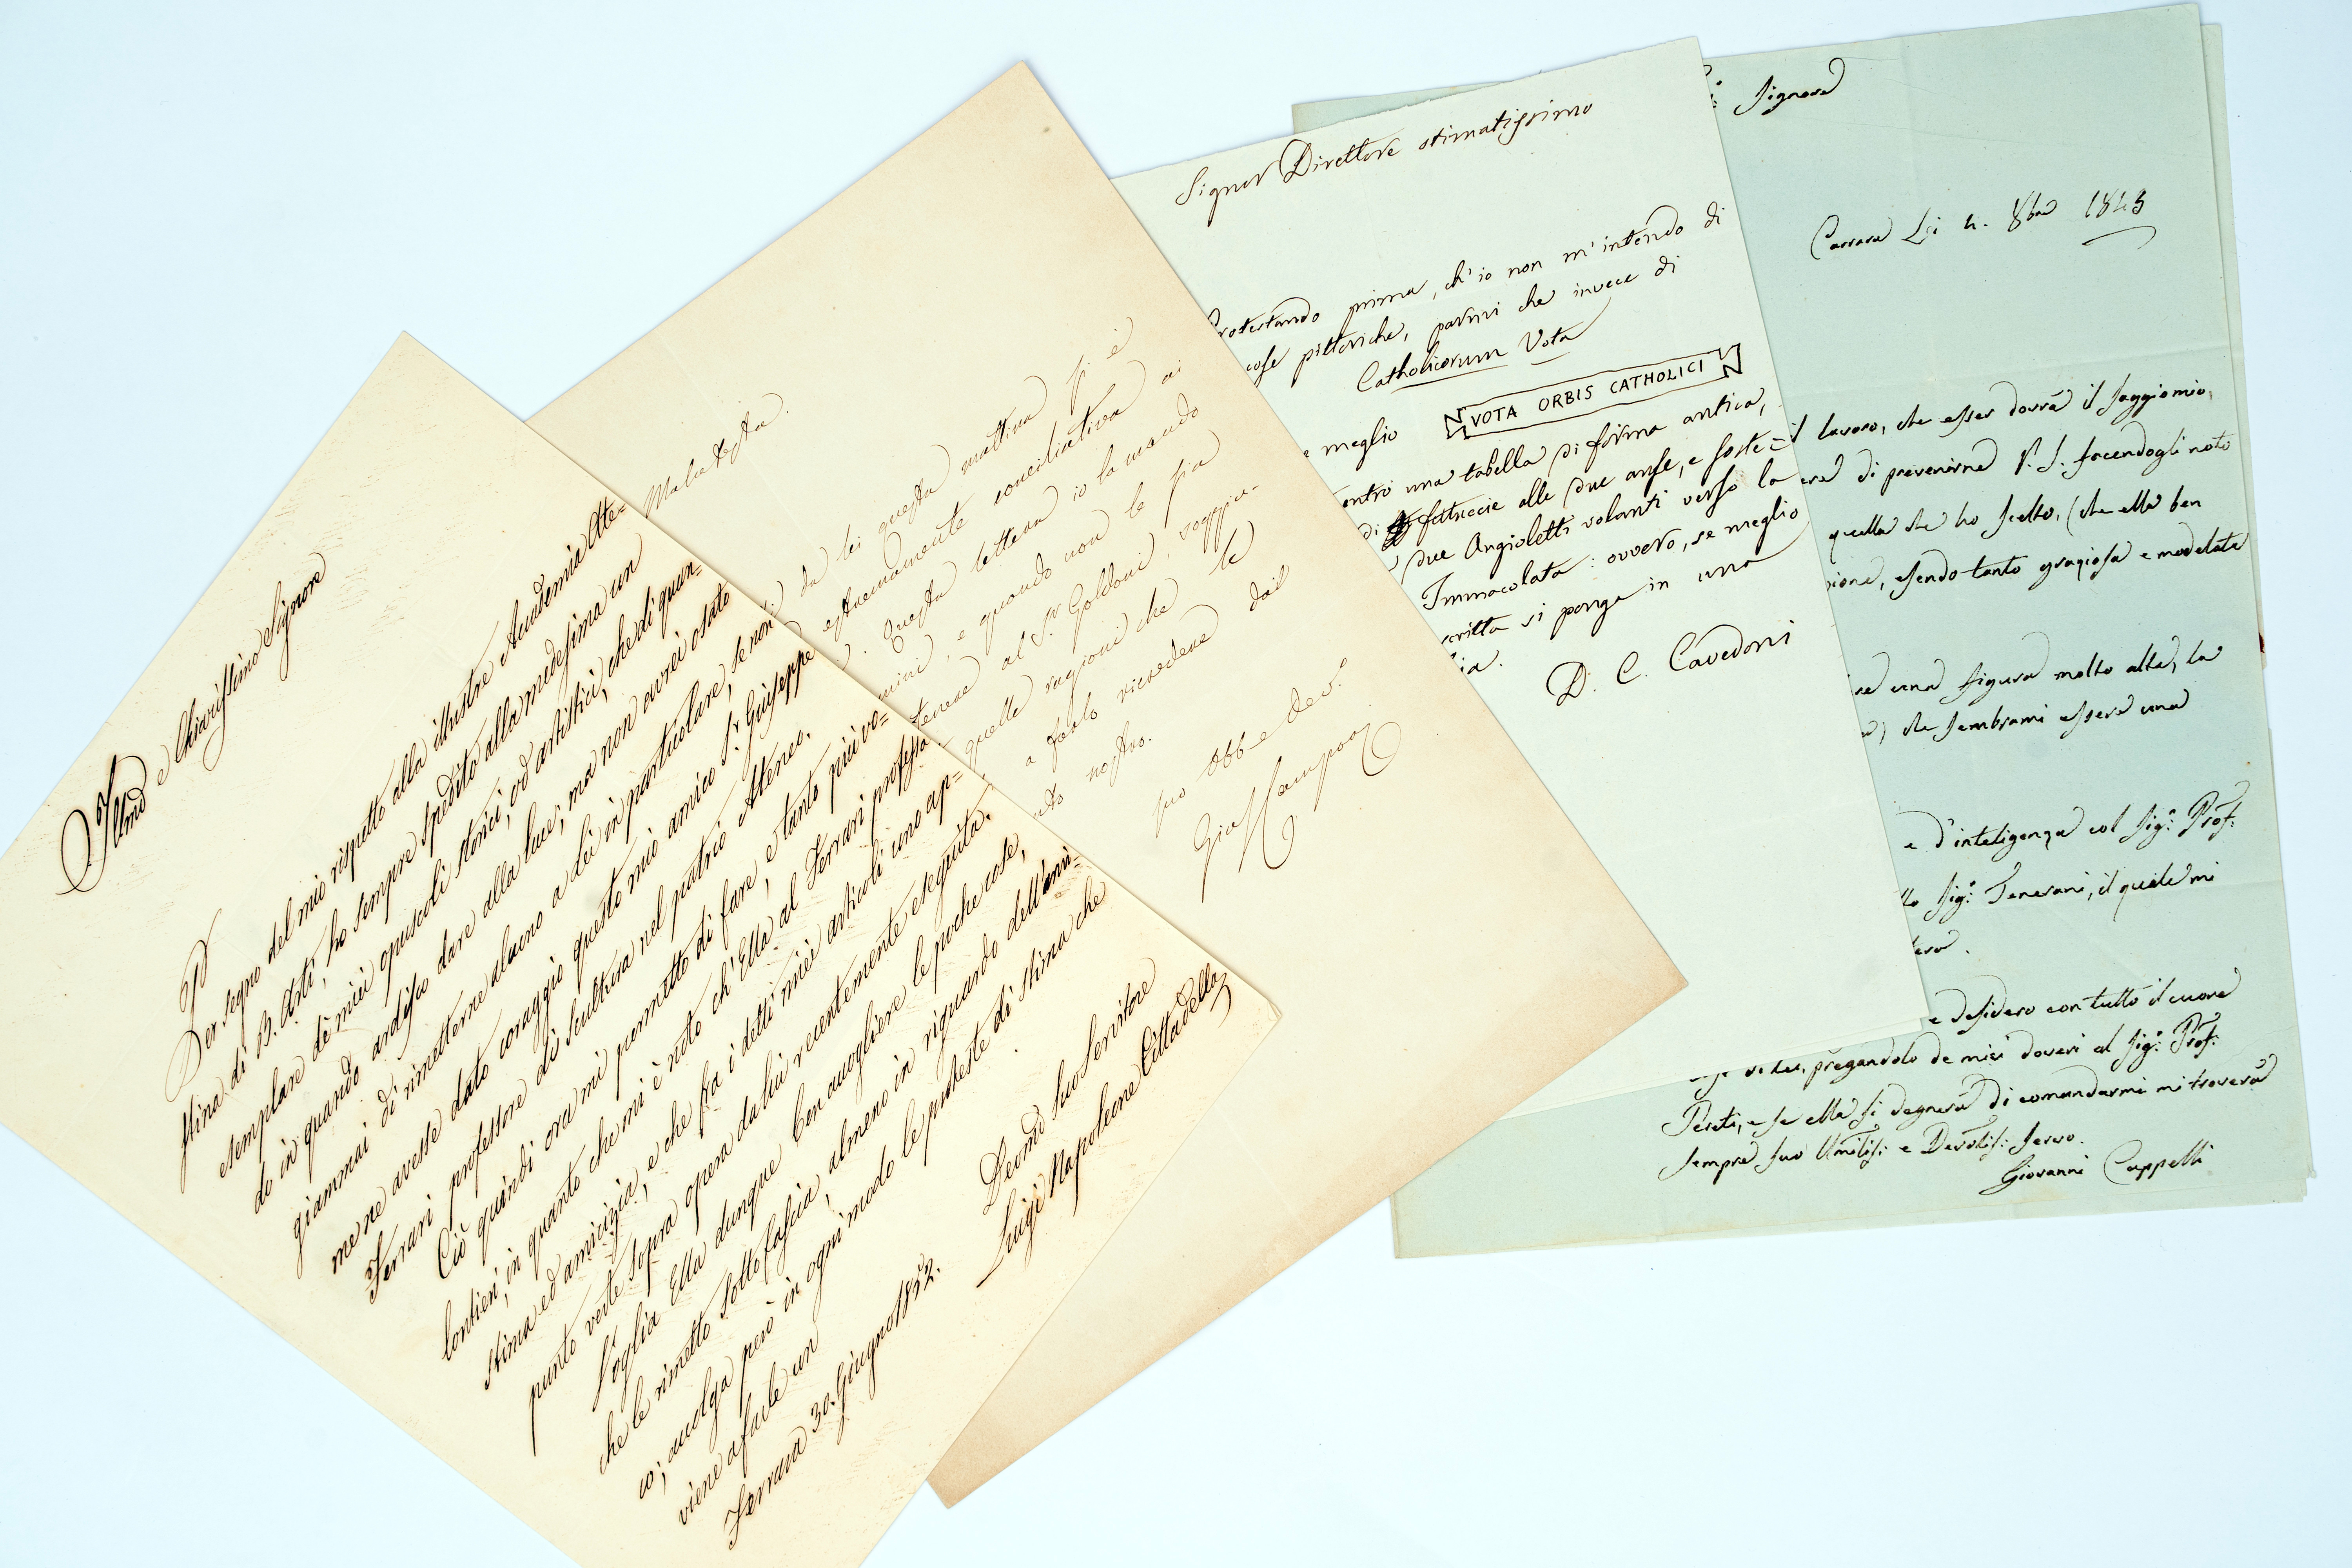 Illmo e Chiarissimo Signore
Per segno del mio rispetto alla illustre Accademia Ate=
stina di B. Arti, ho sempre spedito alla medesima un
esemplare de' miei opuscoli storici, od artistici, che di quan=
do in quando ardisco dare alla luce; ma non avrei osato
giammai di rimetterne alcuno a Lei in particolare, se non
me ne avesse dato coraggio questo mio amico Sr. Giuseppe
Ferrari professore di scultura nel patrio Ateneo.
Ciò quindi ora mi permetto di fare, e tanto più vo=
lontieri, in quanto che mi è noto ch'Ella al Ferrari professa
stima ed amicizia, e che fra i detti miei articoli uno ap=
punto verte sopra opera da lui recentemente eseguita.
Voglia Ella dunque ben accogliere le poche cose,
che le rimetto sotto fascia, almeno in riguardo dell'ami=
co; accolga però in ogni modo le proteste di stima che
viene a farle un
Ferrara 30. Giugno 1852.
Devmo Suo Servitore
Luigi Napoleone Cittadella
Malatesta.
da lei questa mattina si è
estremamente conciliativa ai
Questa lettera io la mando
e quando non le sia
al Sr. Goldoni, soggiu-
quelle ragioni che le
a farlo ricredere dal
nostro.
suo obb e dev.
Gius Campori
Signor Direttore stimatissimo
Protestando prima, ch'io non m'intendo di
cose pittoriche, parmi che invece di
Catholicorum Vota
meglio VOTA ORBIS CATHOLICI
entro una tabella di forma antica,
di fettuccie alle due anse, e soste=
due Angioletti volanti verso la
Immacolata: ovvero, se meglio
scritta si ponga in una
D. C. Cavedoni
Signore
Carrara Li 4. 8bre 1843
il lavoro, che esser dovrà il saggio mio,
di prevenirne V. S. facendogli noto
quella che ho scelto, (che ella ben
essendo tanto graziosa e modelata
una figura molto alta, la
che sembrami essere una
e d'inteligenza col Sigr. Prof.
Sigr. Tenerani, il quale mi
e desidero con tutto il cuore
pregandolo de miei doveri al Sigr. Prof.
Pereti, e se ella si degnerà di comandarmi mi troverà
sempre suo Umilis: e Devotis: servo.
Giovanni Cappelli